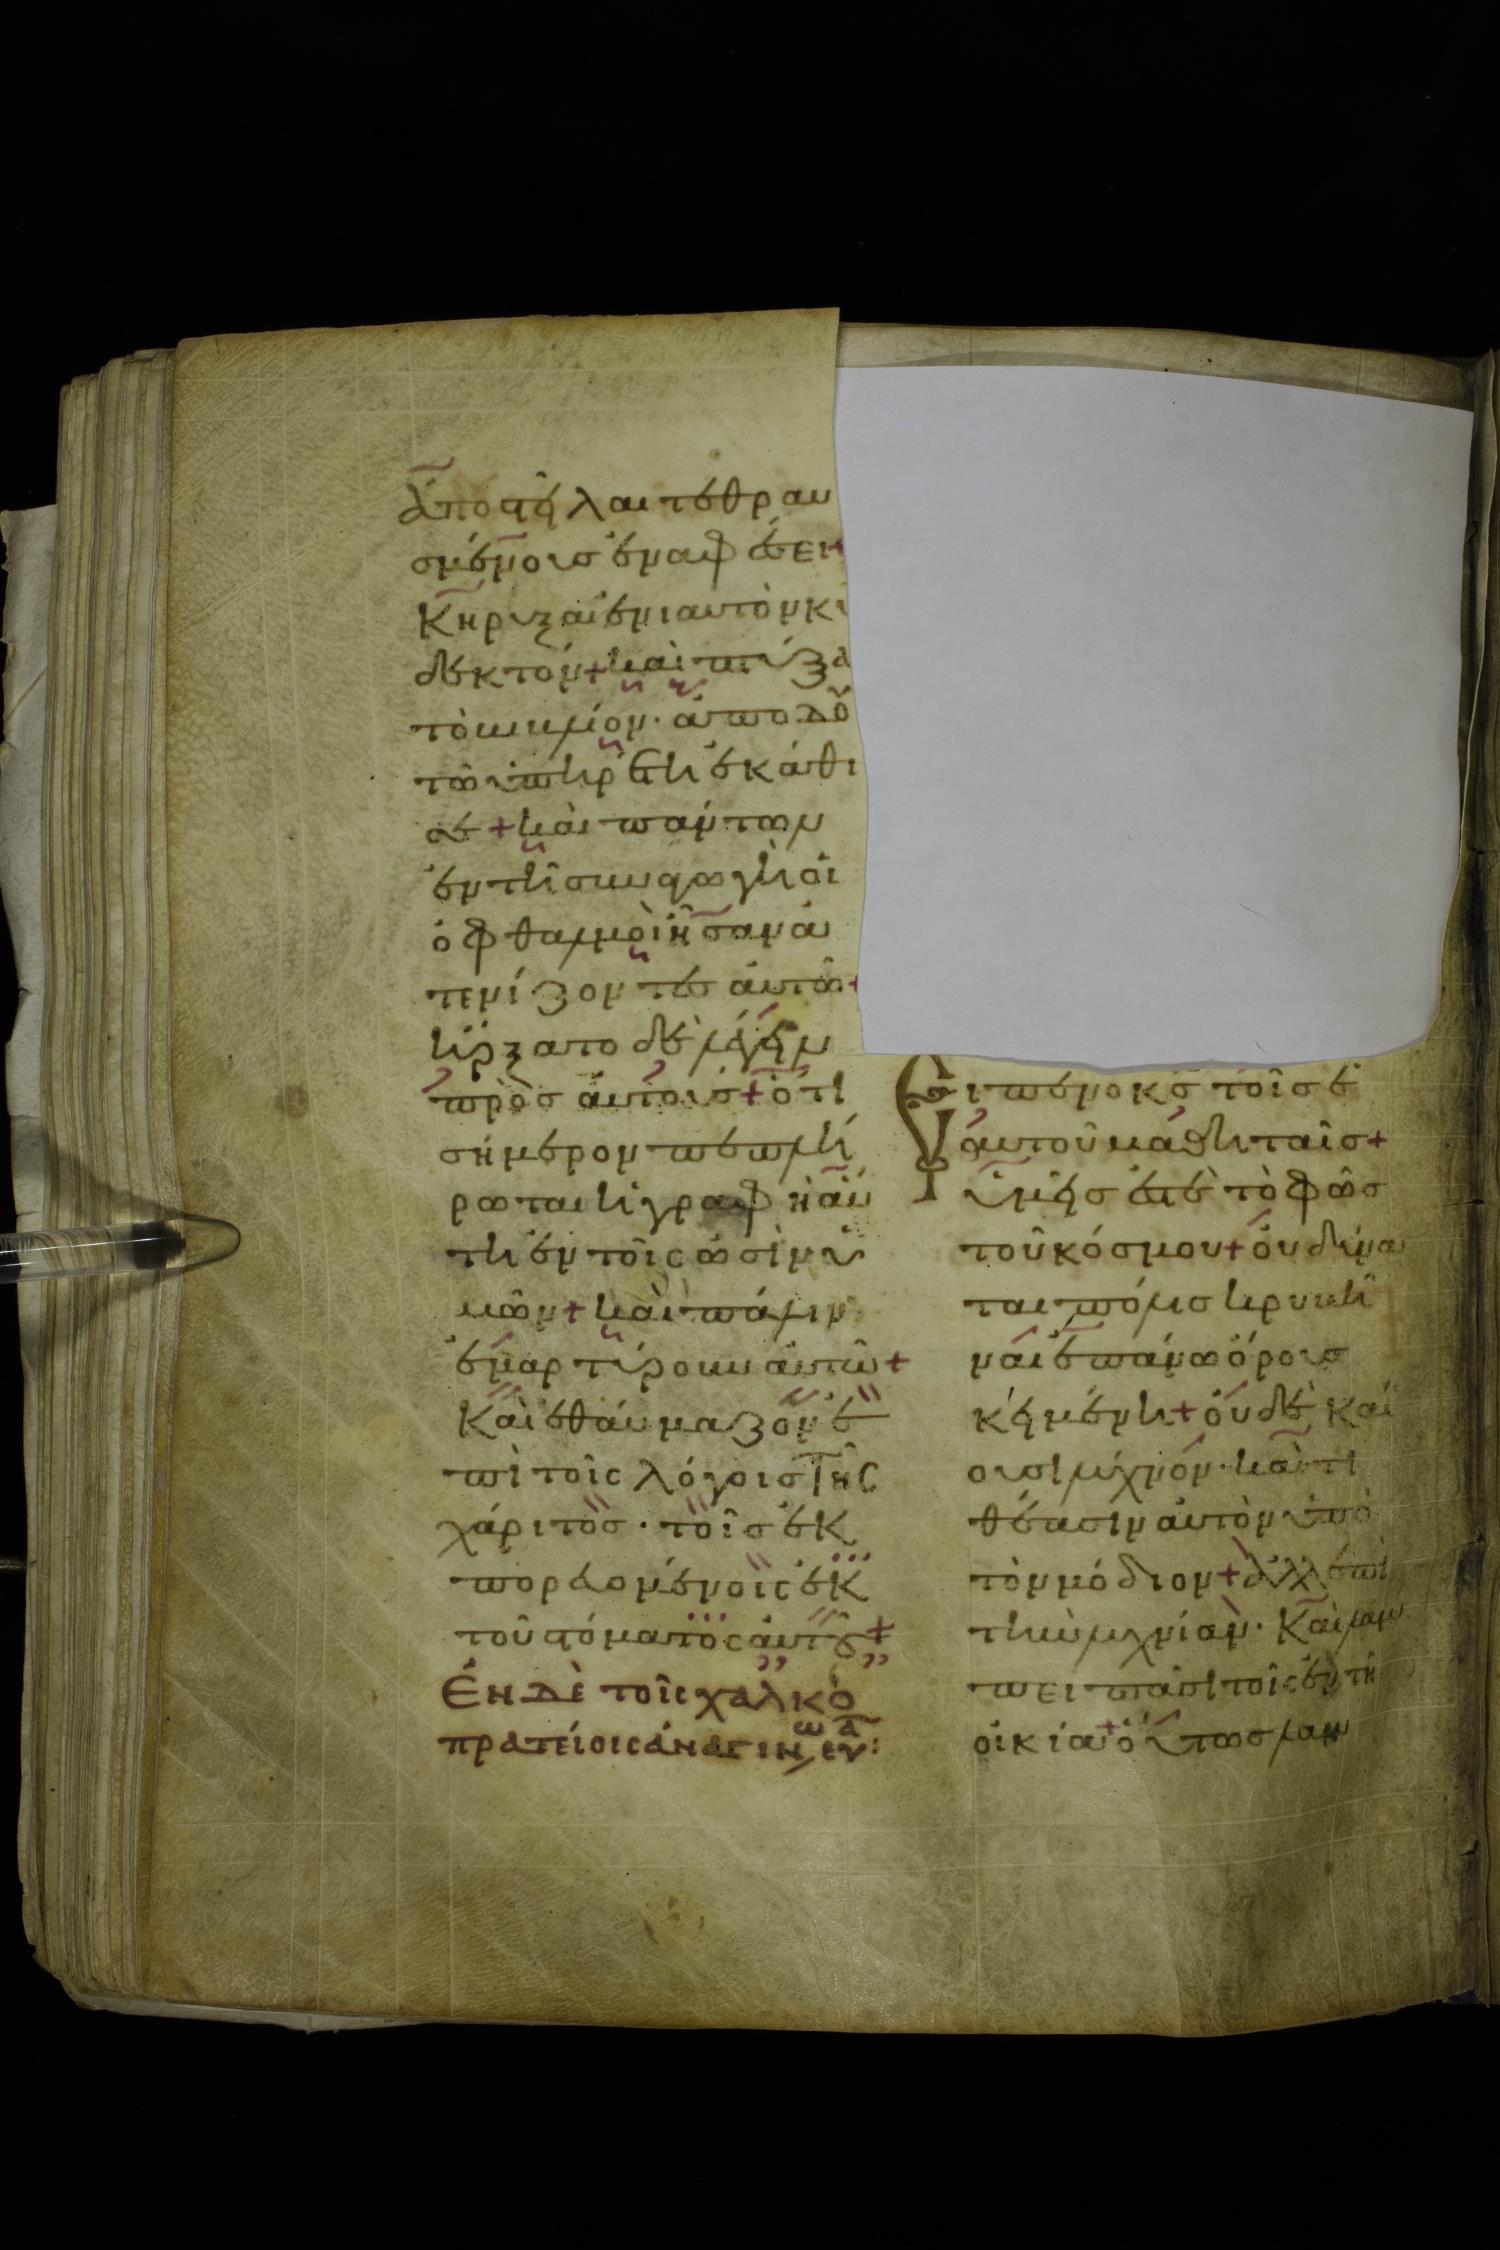 ἀποστεῖλαι τεθραυ
σμένους ἐν ἀφέσει +
Κηρύξαι ἐνιαυτὸν κυ
δεκτόν + καὶ πτύξα
τὸ βιβλίον · ἀποδοὺ
τῶ ὑπηρέτη ἐκάθι
σε + καὶ πάντων
ἐν τῆ συναγωγῆ οἱ
ὀφθαλμοὶ ἦσαν ἀ
τενίζοντες αὐτῶ +
ἤρξατο δὲ λέγειν
πρὸς αὐτούς + ὅτι
σήμερον πεπλή
ρωται ἡ γραφὴ αὕ
τη ἐν τοῖς ὠσὶν ὑ
μῶν + καὶ πάντες
ἐμαρτύρουν αὐτῶ +
Καὶ ἐθαύμαζον ἐ
πὶ τοῖς λόγοις τῆς
χάριτος · τοῖς ἐκ
πορευομένοις ἐκ
τοῦ στόματος αὐτοῦ +
Ἐν δὲ τοῖς χαλκο
πρατείοις ἀναγινώ ευα :
Εἶπεν ο κς τοῖς ἑ
αυτοῦ μαθηταῖς +
ὑμεῖς ἐστὲ τὸ φῶς
τοῦ κόσμου + οὐ δύνα
ται πόλις κρυβῆ
ναι ἐπάνω ὄρους
κειμένη + οὐδὲ καί
ουσι λύχνον · καὶ τι
θέασιν αὐτὸν ὑπὸ
τὸν μόδιον + ἀλλ ἐπὶ
τὴν λυχνίαν · Καὶ λαμ
πει πᾶσι τοῖς ἐν τῆ
οἰκία + οὕτως λαμ